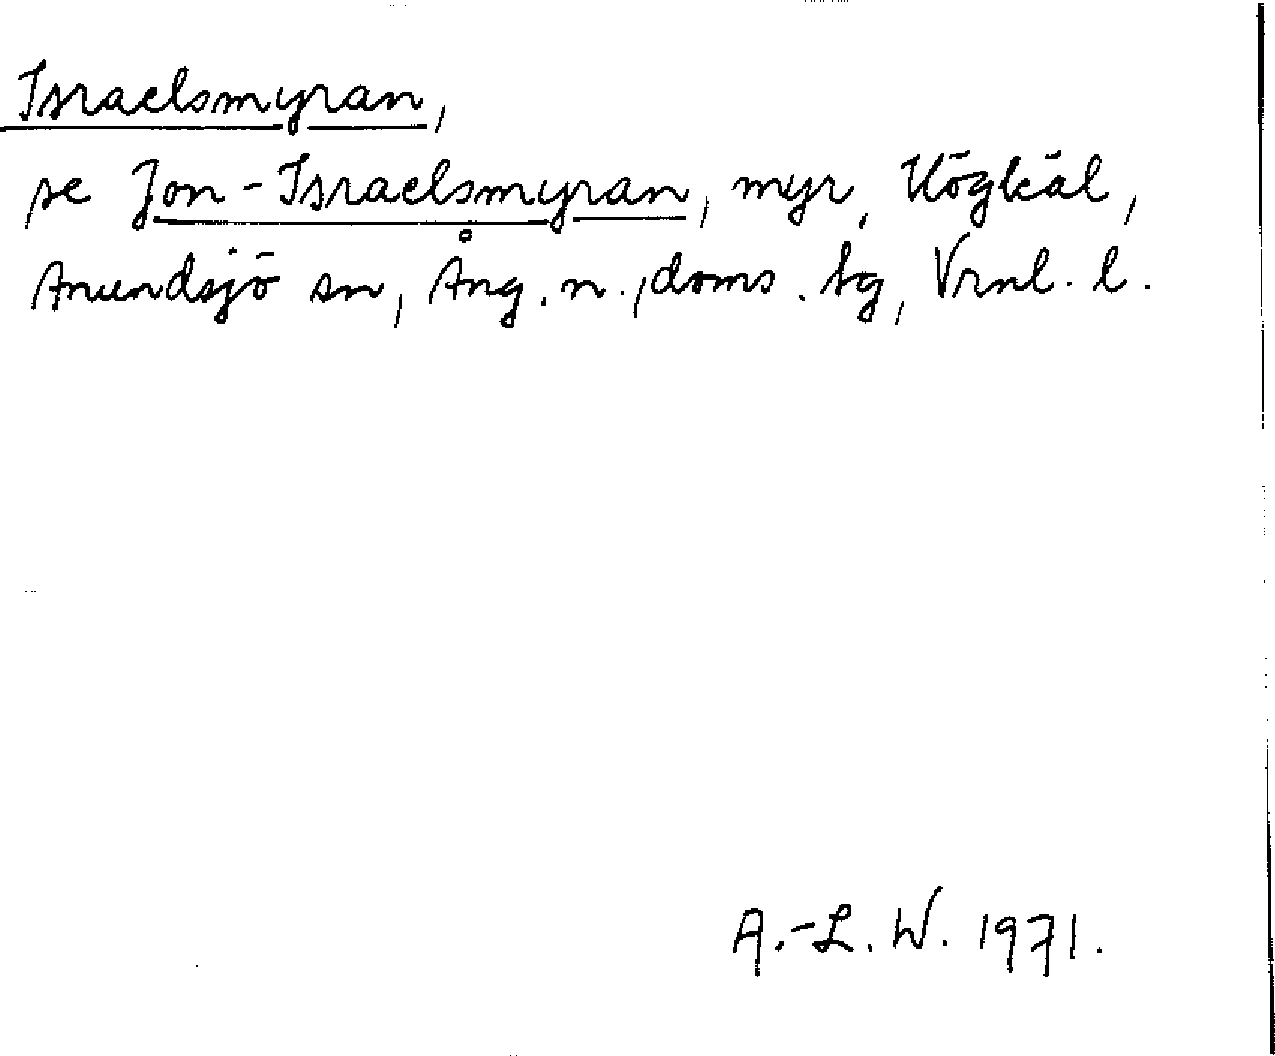 Israelsmyran,
se Jon-Israelsmyran, myr, Högkäl,
Anundsjö sn, Ång. n., doms. tg, Vrnl. l.
A.-L. W. 1971.